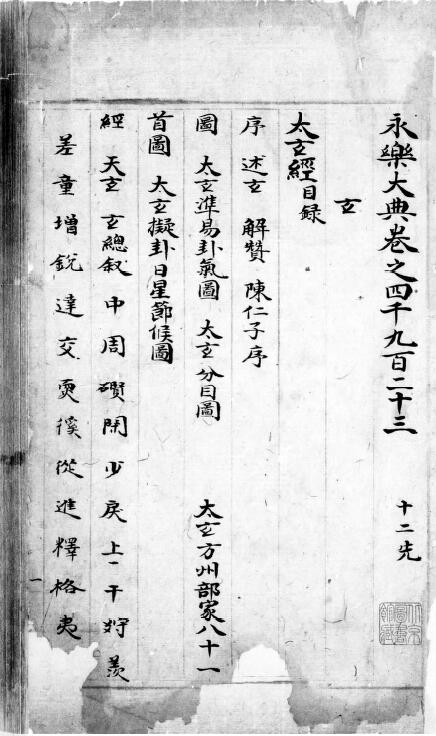 永樂大典卷之四千九百二十三 十二先
玄
太玄經目録
序 述玄 解贊 陳仁子序
圖 太玄準易卦氣圖 太玄分目圖 太玄方州部家八十一
首圖 太玄擬卦日星節候圖
經 天玄 玄總叙 中 周 礥 閑 少 戾 上 干 㝇 羨
差 童 增 鋭 達 交 耎 徯 從 進 釋 格 夷
一